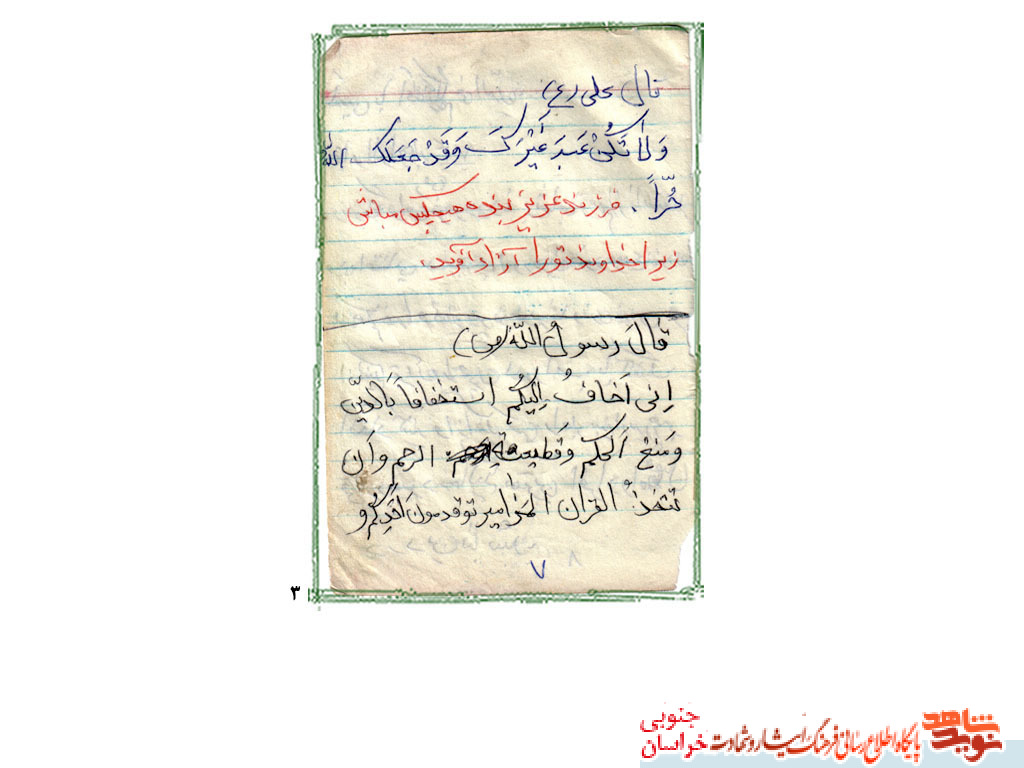 قال علی (ع)
وَ لٰا تَکُنْ عَبدَ غَیْرِکَ وَ قَدْ جَعَلَکَ اللّٰهُ
حُرّاً. فرزند عزیز بنده هیچکس مباش
زیرا خداوند تو را آزاد آفرید.
قٰالَ رسولُ اللّٰه (ص)
اِنی اَخافُ اِلیکُم استخفافاً بَالدیّن
وَ مَنعْ اَلحکم وَ قَطیعة الرحم وَ اَن
تتخذُ القرآن المزٰامیر توقدمونَ اَحَدِکُم و
۷
۳
نوید شاهد
پایگاه اطلاع رسانی فرهنگ ایثار و شهادت
جنوبی
خراسان